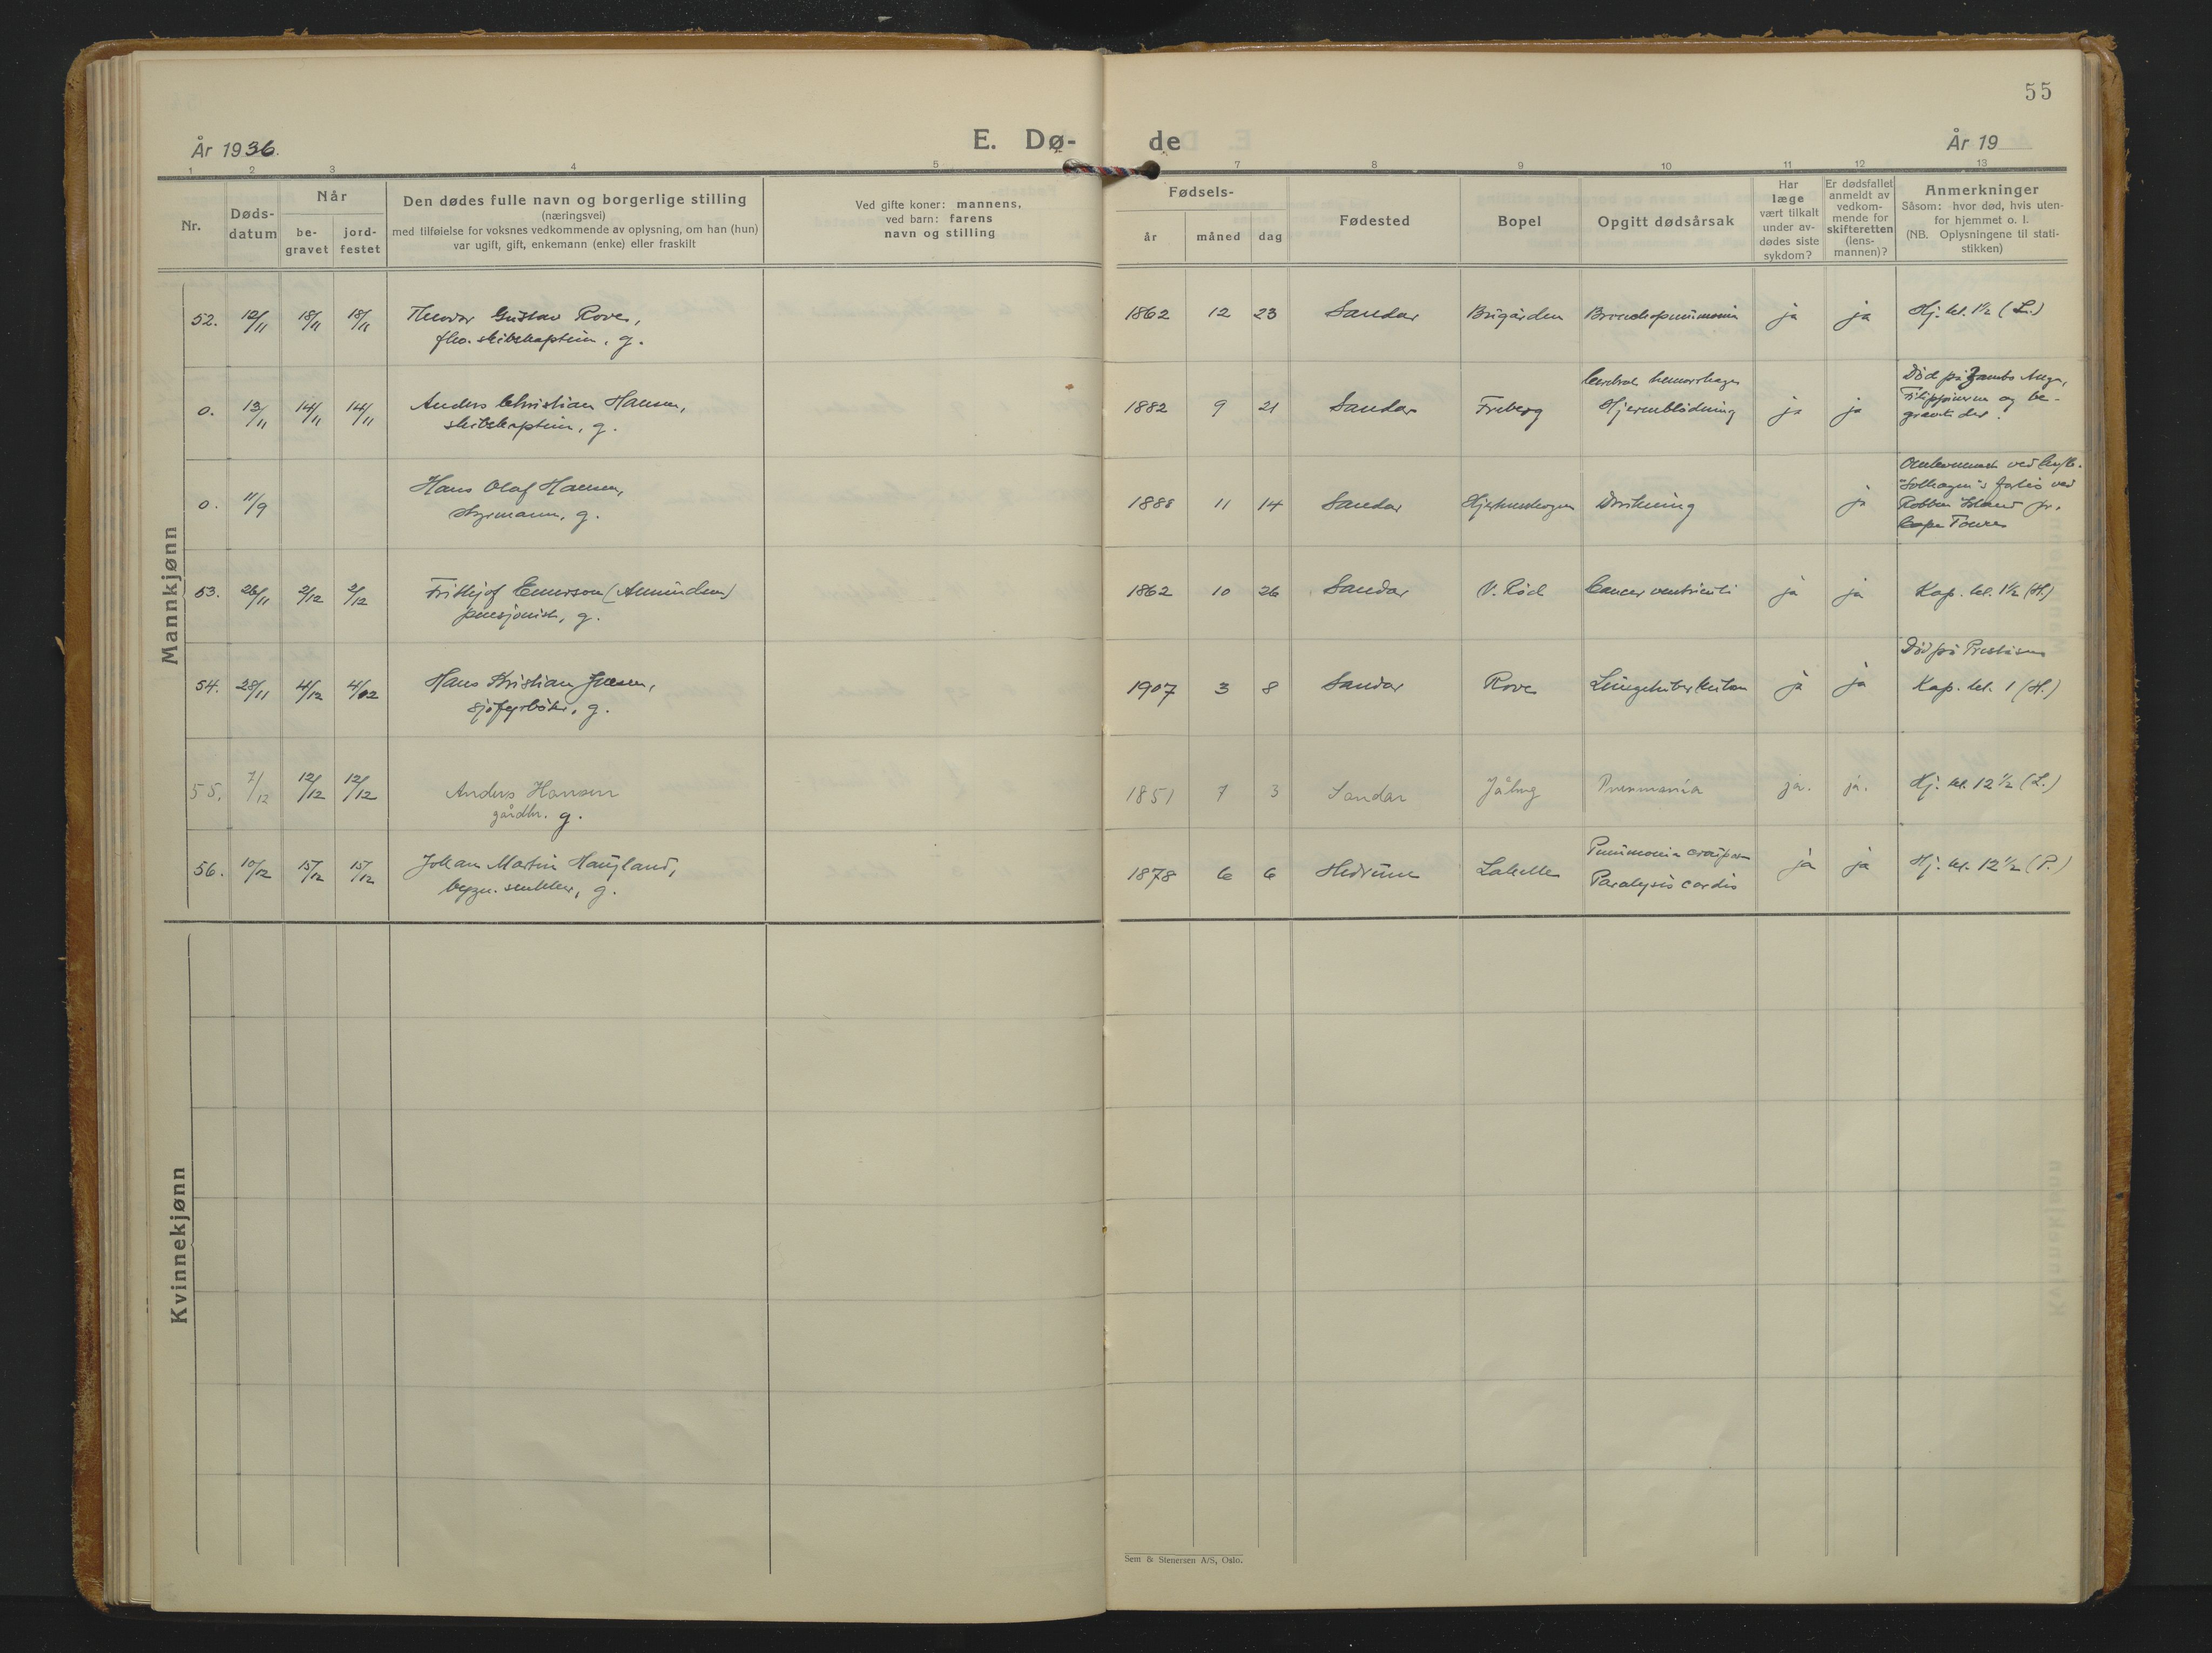 55
År 1936.
E. Dø-
de
År 19
1 2 3 4 5
7 8 9 10 11 12 13
Nr.
Døds-
datum
Når
be-
gravet
jord-
festet
Den dødes fulle navn og borgerlige stilling
(næringsvei)
med tilføielse for voksnes vedkommende av oplysning, om han (hun)
var ugift, gift, enkemann (enke) eller fraskilt
Ved gifte koner: mannens,
ved barn: farens
navn og stilling
Fødsels-
år
måned
dag
Fødested
Bopel
Opgitt dødsårsak
Har
læge
vært tilkalt
under av-
dødes siste
sykdom?
Er dødsfallet
anmeldt av
vedkom-
mende for
skifteretten
(lens-
mannen)?
Anmerkninger
Såsom: hvor død, hvis uten-
for hjemmet o. l.
(NB. Oplysningene til stati-
stikken)
Mannkjønn
52. 12/11 18/11 18/11 Theodor Gustav Rove,
skibskaptein, g.
1862 12 23 Sandar Bugården Bronchopneumonia ja ja Hj. kl. 1½ (L.)
0. 13/11 14/11 14/11 Anders Christian Hansen,
skibskaptein, g.
1882 9 21 Sandar Freberg
Cerebral hemorrhage
Hjerneblødning
ja ja
Død på Zambo Anga,
Filippinerne og be-
gravet der.
0. 11/9 Hans Olaf Hansen,
styrmann, g.
1888 11 14 Sandar Drukning ja
Omkommet ved
"Solhagen"s forlis ved
Robben Island pr.
Cape Town
53. 26/11 2/12 2/12 Frithjof Emerson (Amundsen)
pensjonist, g.
1862 10 26 Sandar V. Rød Cancer ventriculi ja ja Kap. kl. 1½ (H.)
54. 28/11 4/12 4/12 Hans Kristian Jensen,
sjøfyrbøter, g.
1907 3 8 Sandar Rove Lungetuberkulose ja ja
Død på Preståsen
Kap. kl. 1 (H.)
55. 7/12 12/12 12/12 Anders Hansen
gårdbr. g.
1851 7 3 Sandar Jåberg Pneumonia ja. ja. Hj. kl. 12½ (L.)
56. 10/12 15/12 15/12 Johan Martin Haugland,
bygn. snekker, g.
1878 6 6 Hedrum Lahelle
Pneumonia crouposa
Paralysis cordis
ja ja Hj. kl. 12½ (P.)
Kvinnekjønn
Sem & Stenersen A/S, Oslo.